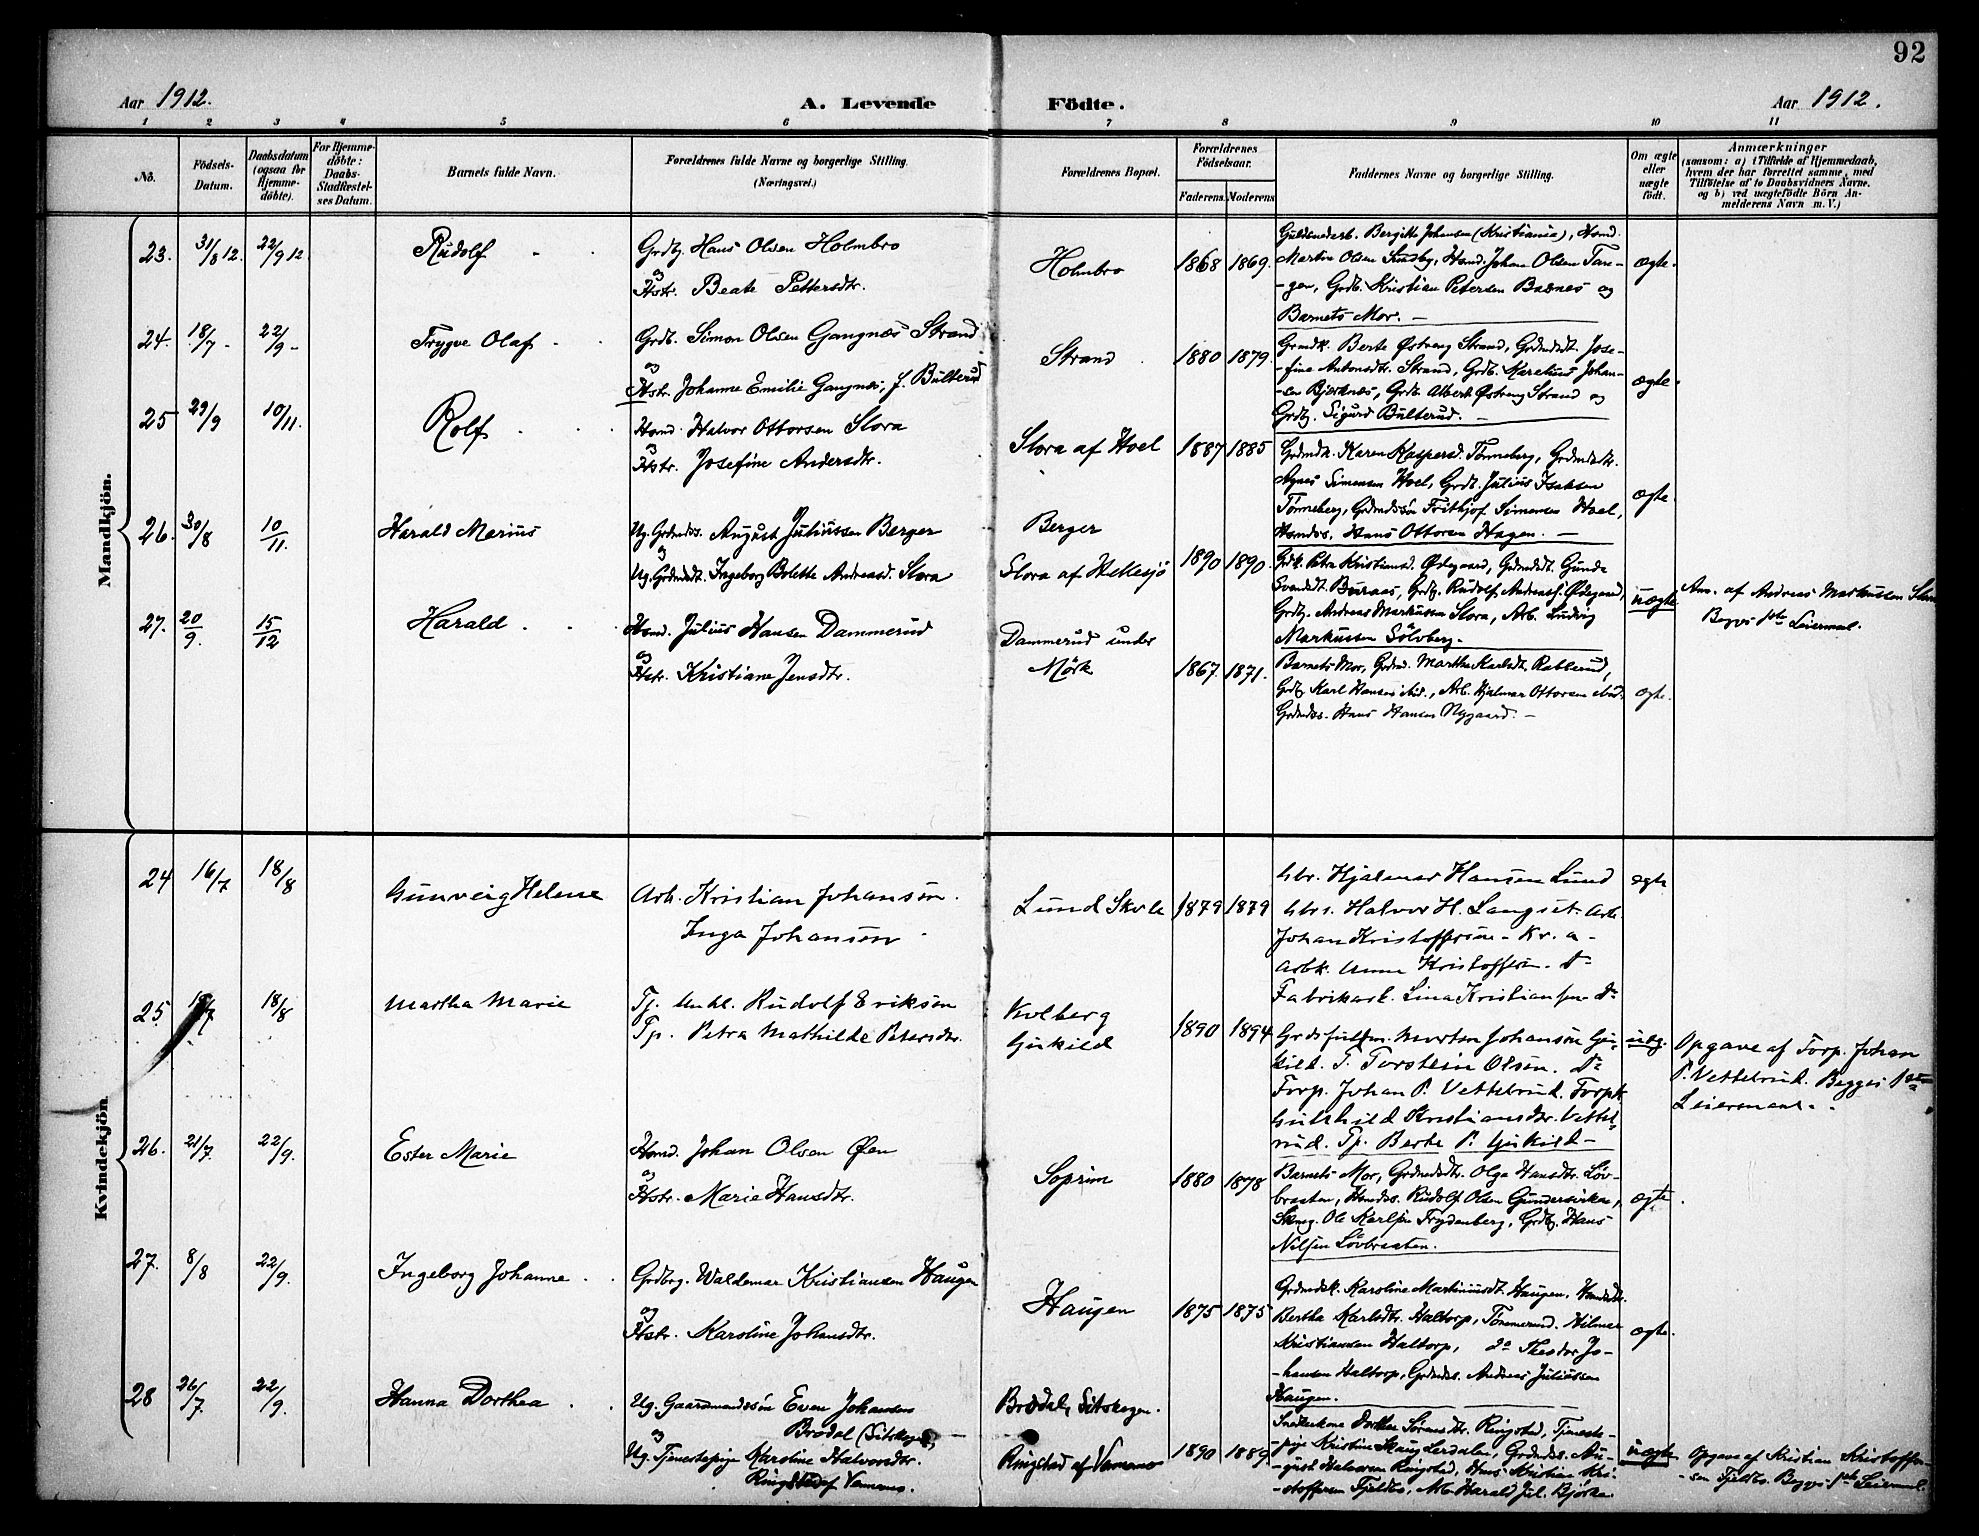 92
Aar 1912.
A. Levende Födte.
Aar 1912.
1 2 3 4 5 6 7 8 9 10 11
No.
Födsels-
Datum.
Daabsdatum
(ogsaa for
Hjemme-
döbte).
For Hjemme-
döbte:
Daabs-
Stadfæstel-
ses Datum.
Barnets fulde Navn.
Forældrenes fulde Navne og borgerlige Stilling.
(Næringsvei.)
Forældrenes Bopæl.
Forældrenes
Födselsaar.
Faderens. Moderens.
Faddernes Navne og borgerlige Stilling.
Om ægte
eller
uægte
födt.
Anmærkninger
(saasom: a) i Tilfælde af Hjemmedaab,
hvem der har forrettet samme, med
Tilföielse af to Daabsvidners Navne.
og b) ved uægtefödte Börn An-
melderens Navn m. V.)
Mandkjön.
23. 31/8 12. 22/9 12 Rudolf
Grdbg. Hans Olsen Holmbro
og
Hstr. Beate Pettersdtr.
Holmbro 1868 1869.
Bergitte Johansen (Kristiania), Hsmd.
Martin Olsen Sundby, Hsmd. Johan Olsen Tan-
-gen, Grdb. Kristian Petersen Basnes og
Barnets Mor. -
ægte.
24. 18/7 - 22/9 - Trygve Olaf
Grdb. Simon Olsen Gangnæs Strand
og
Hstr. Johanne Emilie Gangnæs, f. Bulterud
Strand 1880 1879.
Grmdk. Berte Østreng Strand, Grdmdsdt. Jose-
-fine Antonsdtr. Strand, Grdb. Karelius Johan-
-sen Bjerknæs, Grdb. Albert Østreng Strand og
Grdbg. Sigurd Bulterud. -
ægte.
25 29/9 10/11. Rolf
Hsmd. Halvor Ottorsen Slora
og
Hstr. Josefine Andersdtr.
Slora af Hoel 1887 1885
Grdmdk. Karen Kaspersd. Tønneberg, Grdmdsdtr.
Agnes Simensen Hoel, Grdb. Julius Isaksen
Tønneberg, Grdmdssøn Frithjof Simensen Hoel,
Hsmdss. Hans Ottersen Hagen. -
ægte
26. 30/8 10/11. Harald Marius
Ug. Grdmdss. August Juliussen Berger
og
Ug. Grdmdsdt. Ingeborg Bolette Andreasd. Slora
Berger
Slora af Hellesjø 1890 1890.
Grdk. Petra Kristiansd. Ødegaard, Grdmdsdt. Gunda
Svendsdt. Buraas, Grdbg. Rudolf Andreass. Ødegaard,
Grdbg. Andreas Markussen Slora, Arb. Ludvig
Markussen Sölvberg.-
uægte
An. af Andreas Markussen Slora
Begges 1ste Leiermaal.
27. 20/9. 15/12 Harald
Hsmd. Julius Hansen Dammerud
og
Hstr. Kristiane Jensdtr.
Dammerud under
Mörk 1867. 1871.
Barnets Mor, Grdmd. Martha Karlsdt. Rakkerud,
Grdbg. Karl Hansen ibid., Arb. Hjalmar Ottersen ibid.
Grdmdss. Hans Hansen Nygaard. -
ægte.
Kvindekjön.
24 16/7 18/8 Gunveig Helene
Arb. Kristian Johansen.
Inga Johansen
Lund Skole 1879 1879
Gbr. Hjalmar Hansen Lund
Gbr. Halvor H. Langset. Arb.
Johan Kristoffersen - Kr. a -
Arbk. Anna Kristoffersen. Do
Fabrikarb. Lina Kristiansen Do
ægte
25. 18/8 Martha Marie
Tj. Rudolf Eriksen
Tp. Petra Mathilde Petersdtr.
Kolberg
Gukild 1890 1894
Morten Johansen Gu-
kild. T. Torstein Olsen. Do
Forp. Johan P. Vettebrud. Forpk.
Gulbild Kristiansdtr. Vetteb-
rud. Tp. Berte P. Gukild -
uæg.
Opgave af Forp. Johan
P. Vettebrud. Begges 1ste
Leiermaal.
26. 21/7 22/9. Ester Marie
Hsmd. Johan Olsen Øen
og
Hstr. Marie Hansdtr.
Soprim 1880 1878
Barnets Mor, Grdmdsdtr. Olga Hansdtr. Löv-
braaten, Hsmdss. Rudolf Olsen Gundersvika,
Skomg. Ole Karlsen Frydenberg, Grdbg. Hans
Nilsen Lövbraaten.
ægte.
27. 8/8 22/9. Ingeborg Johanne
Grdbrg. Waldemar Kristiansen Haugen
og
Hstr. Karoline Johansdtr.
Haugen 1875 1875
Grdmdsk. Karoline Martiniusdt. Haugen, Hsmdsdtr.
Bertha Karlsdtr. Haltorp, Tömmermd. Hilmar
Kristiansen Haltorp, do Theodor Jo-
-hansen Haltorp, Grdmdss. Andreas Juliussen
Haugen.
ægte.
28 26/7. 22/9. Hanna Dorthea
Ug. Gaardmandssön Even Johansen
Brødal (Sitskogen)
og
Ug. Tjenestepige Karoline Halvorsdtr.
Ringstad af Vammes.
Brødal, Sitskogen.
Ringstad af Vammes 1890 1889
Snedkerkone Dorthea Sörensdtr. Ringstad, Tjeneste-
-pige Kristine Skaug Lerdalen, Grdmdss. Au-
-gust Halvorsen Ringstad, Hsmss. Kristian Kri-
-stoffersen Fjeldbo, Arb. Harald Jul. Bjørke
uægte
Opgave af Kristian Kristoffer-
-sen Fjeldbo. Begges 1ste Leiermaal.